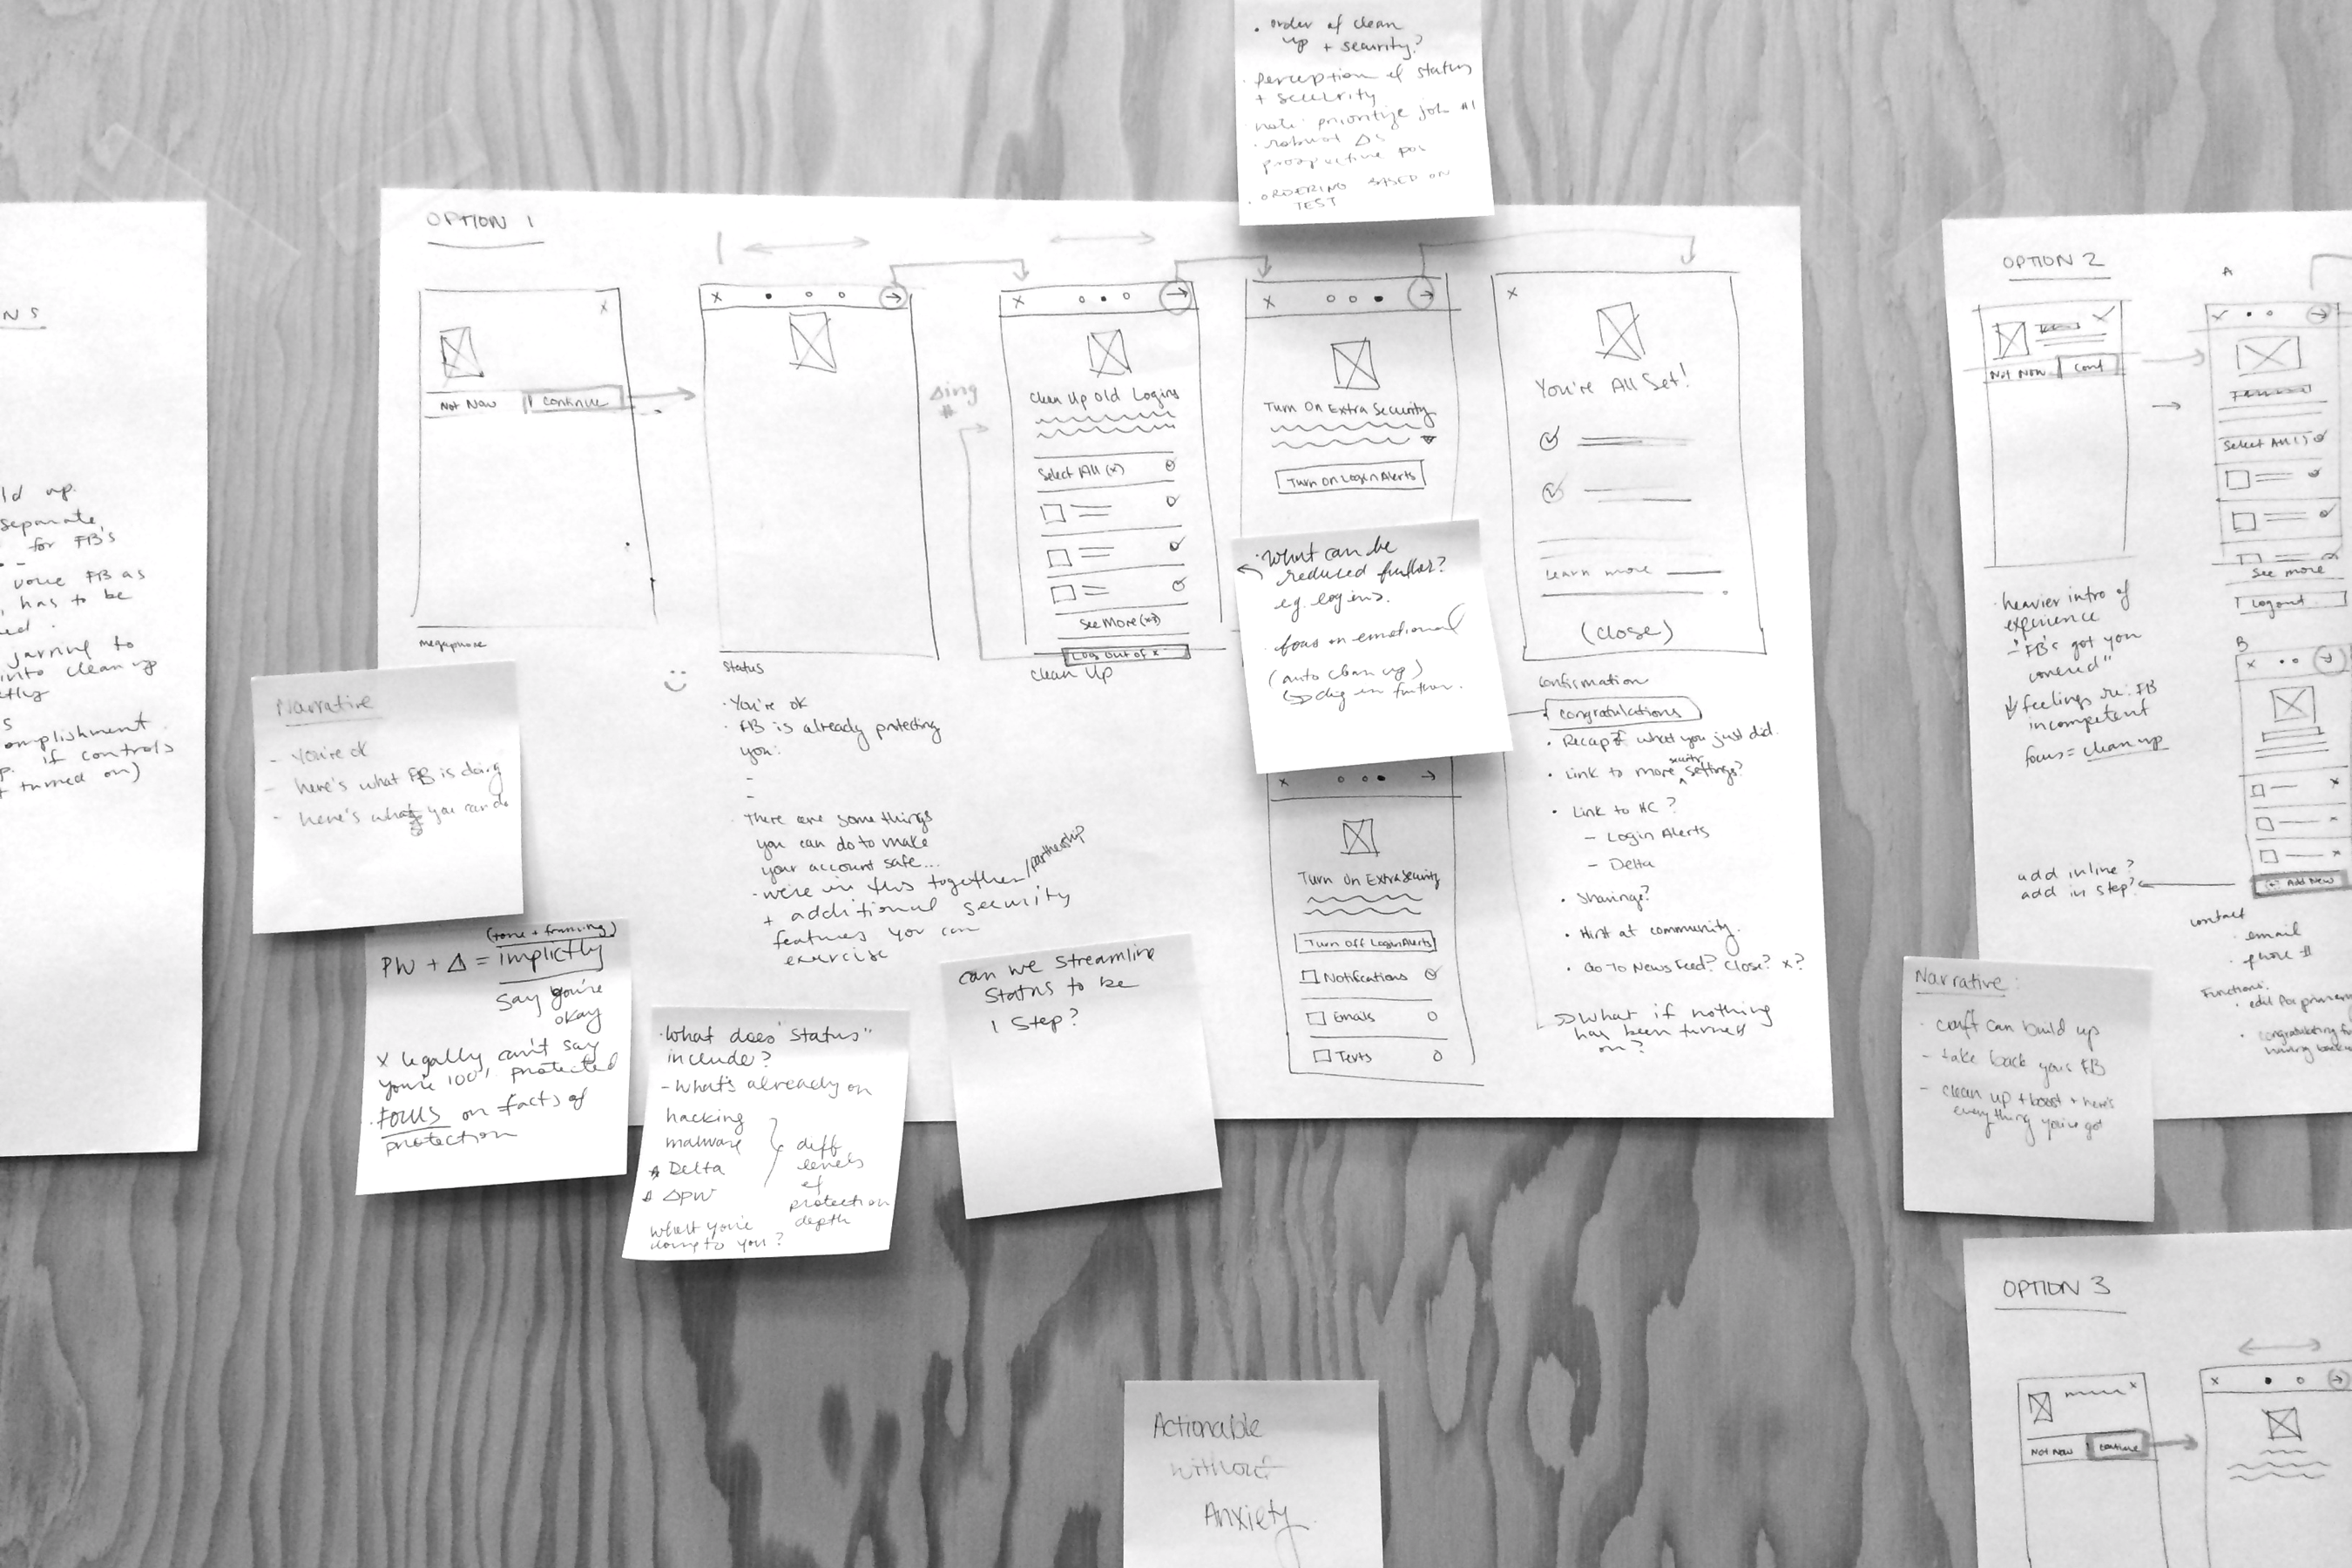 NS
ld up.
separate,
for FB's
voice FB as
, has to be
jarring to
into clean up
s
omplishment
p. if controls
t turned on)
• order of clean
up + security?
• perception of status
+ security
note: prioritize job #1
• robust Δs
• ORDERING BASED ON
TEST
OPTION 1
x
Not Now
Continue
megaphone
x
→
Status
• You're ok
• FB is already protecting
you:
–
–
There are some things
you can do to make
your account safe...
• we're in this together/partnership
+ additional security
features you can
exercise
Δing
#
x
→
Clean Up Old Logins
Select All (x)
See More (x)
Log Out of x
Clean Up
x
→
Turn On Extra Security
Turn On Login Alerts
• What can be
reduced further?
e.g. logins.
• focus on emotional
(auto clean up)
dig in further.
x
→
Turn On Extra Security
Turn Off Login Alerts
Notifications
Emails
Texts
x
You're All Set!
Learn more
(close)
Confirmation
• congratulations
• Recap of what you just did.
• Link to more security settings?
• Link to HC?
– Login Alerts
– Delta
• Sharing?
• Hint at community.
• Go To News Feed? Close? x?
What if nothing
has been turned
on?
Narrative
- You're ok
- here's what FB is doing
- here's what you can do
(tone + framing)
PW + Δ = implictly
say you're
okay
x legally can't say
you're 100% protected
• FOCUS on facts of
protection
• What does "status"
include?
- What's already on
hacking
malware
Delta
ΔPW
diff
levels
of
protection
depth
what you're
doing to you?
can we streamline
Status to be
1 Step?
Actionable
without
Anxiety
OPTION 2
A
Not Now
Cont
Select All ( )
See more
Logout
• heavier intro of
experience
- "FB's got you
covered"
↓ feelings re: FB
incompetent
focus = clean up
B
x
Add New
add inline?
add in step?
contact
• email
• phone #
Functions:
Narrative:
- can build up
- take back your FB
- clean up + boost + here's
everything you've got
OPTION 3
x
Not Now
Continue
x
→